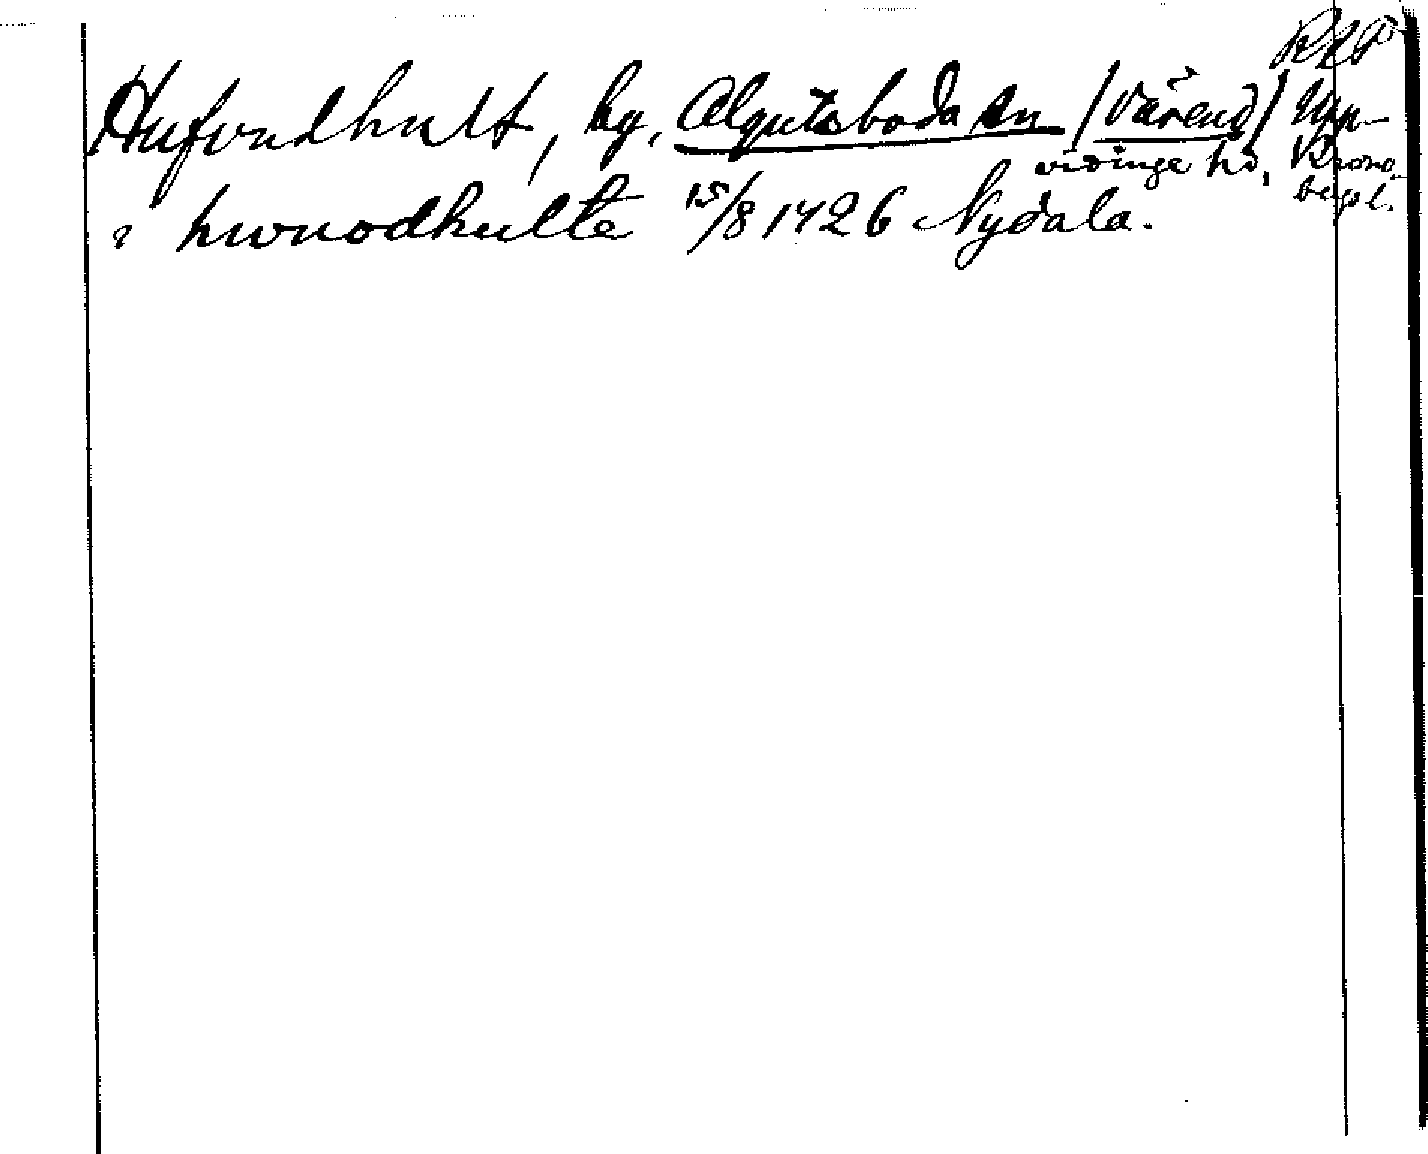 RAP
Hufvudhult, by, Algutsboda sn (Värend) Upp-
vidinge hd, Krono-
bergs l.
i hwuodhulte 15/8 1426 Nydala.